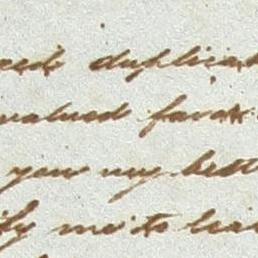 duplicat
valued favor
you my best
ify me to lea